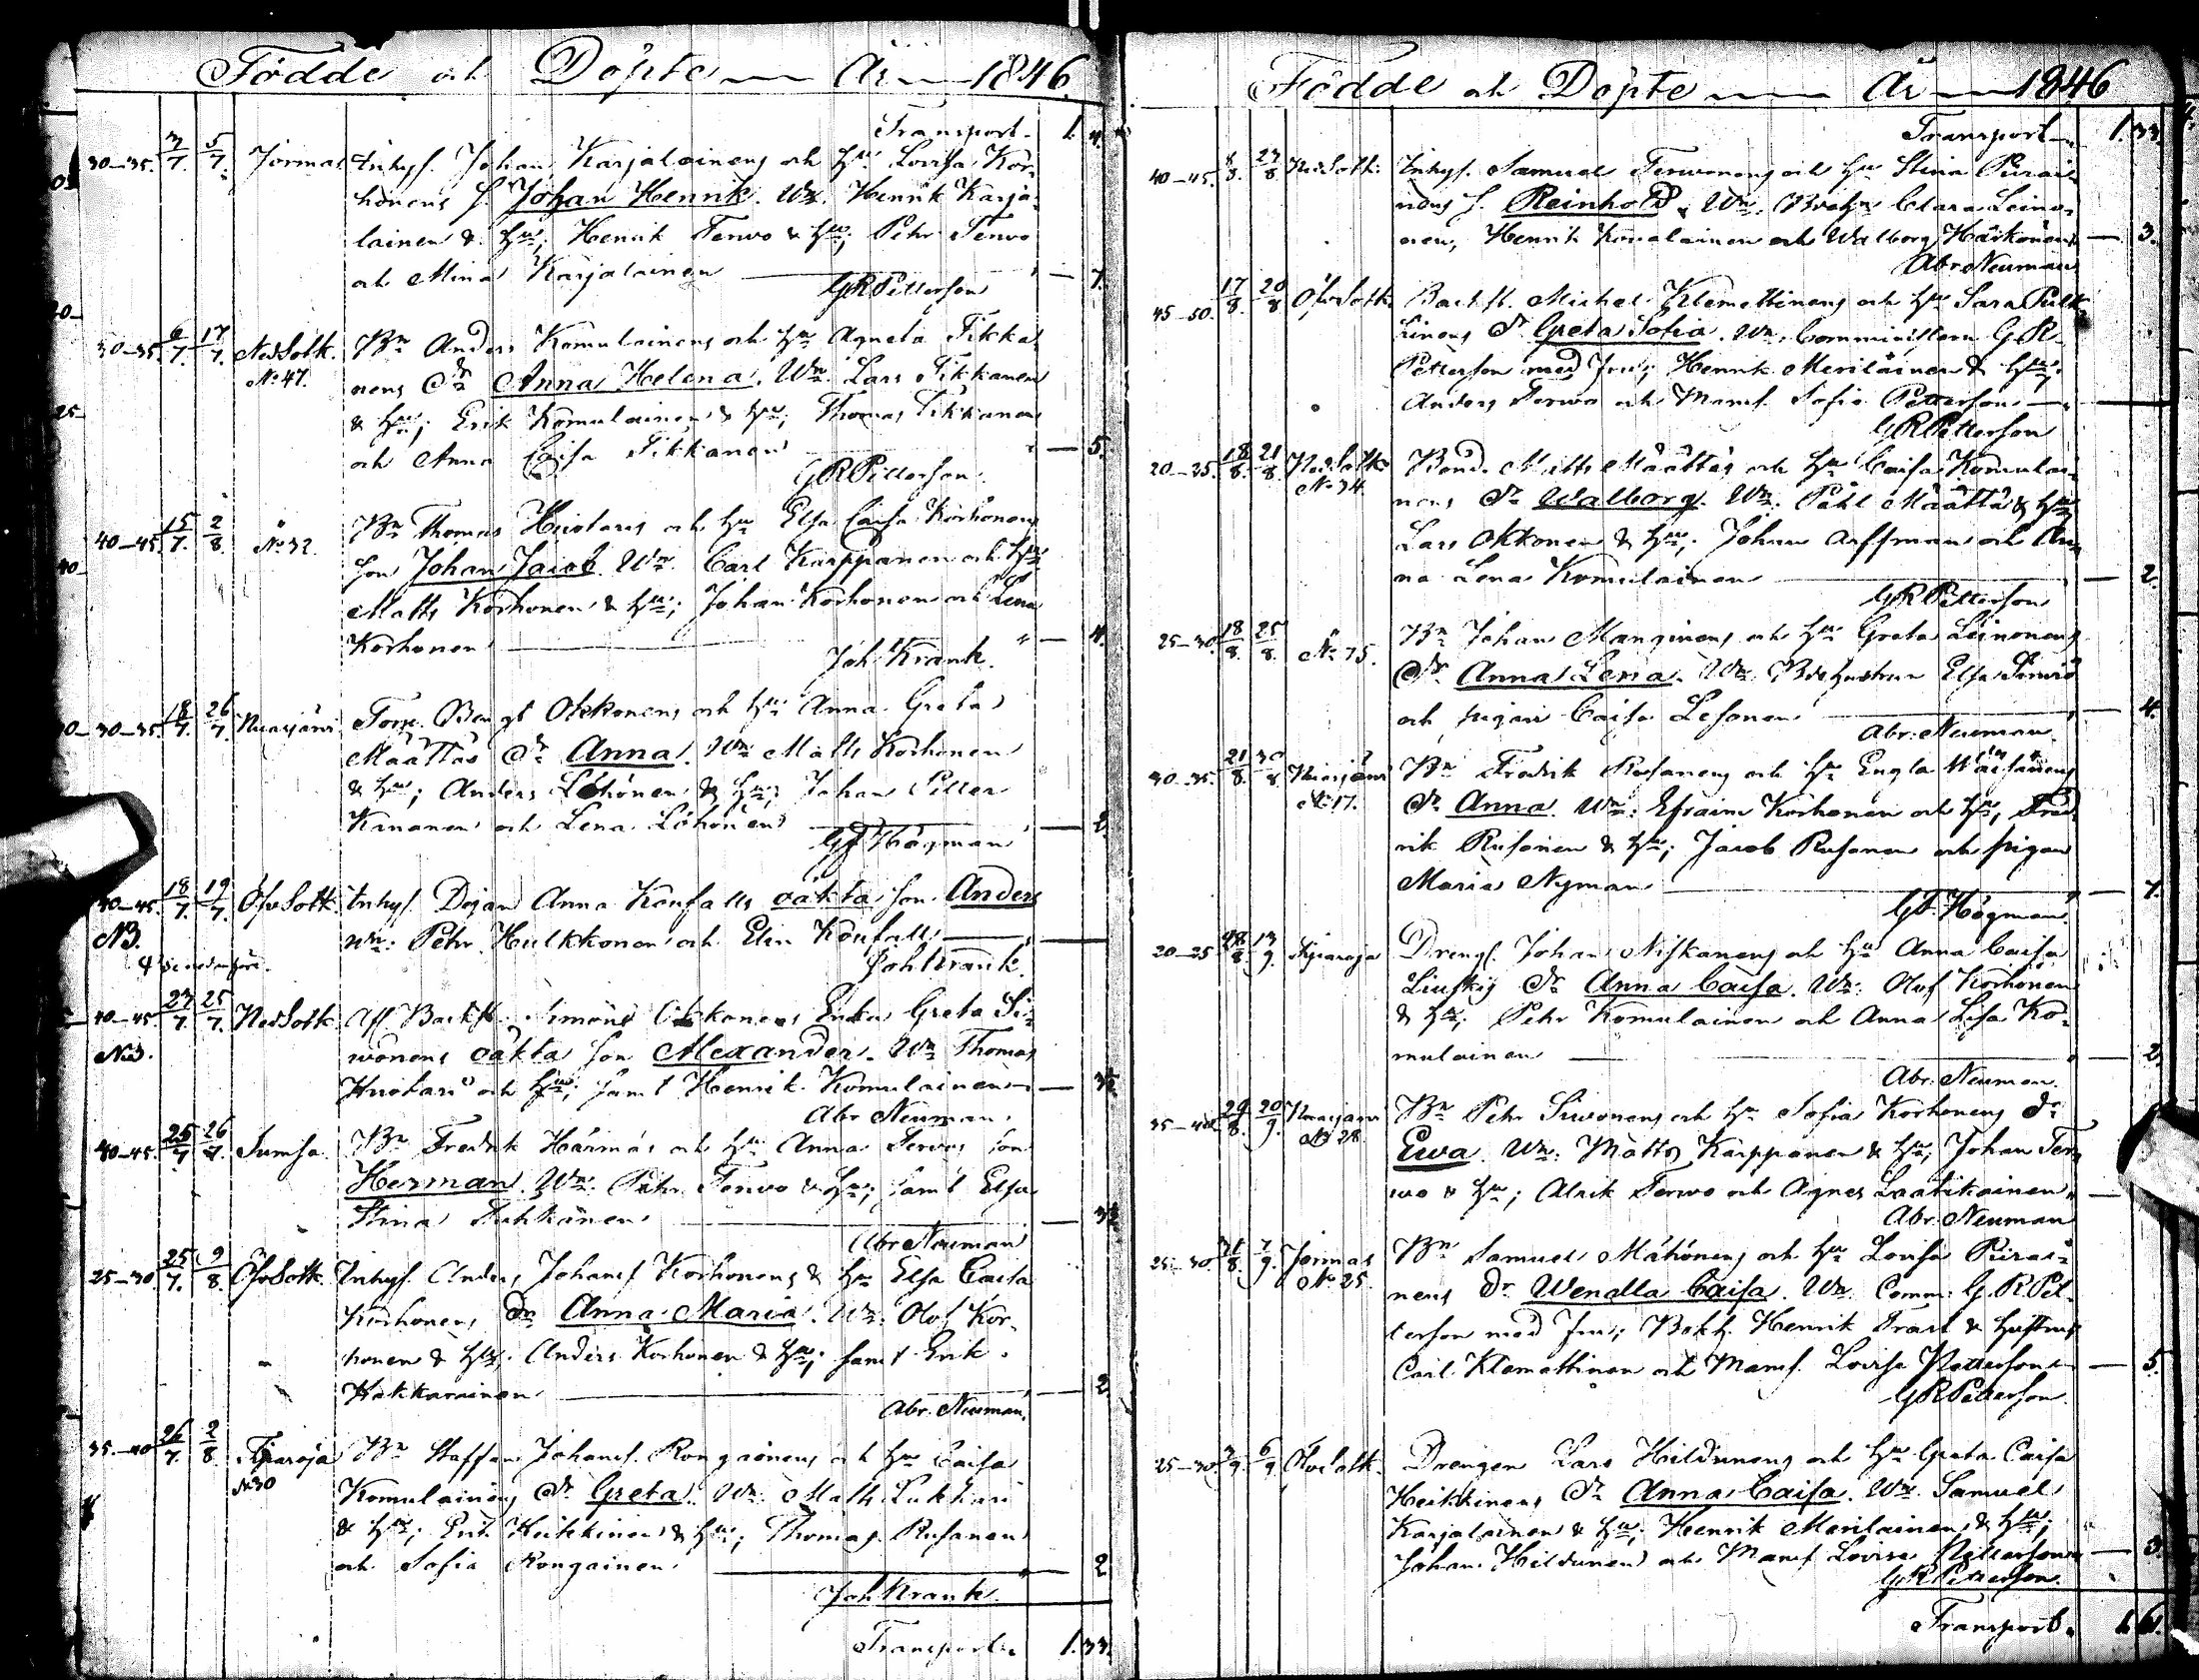 Födde och Döpte År 1846
Transport. 1. 4.
30-35. 3/7. 5/7. Jormas Inhys. Johan Karjalainens och hu Lovisa Kor-
honens s. Johan Henrik. Wn. Henrik Karja-
lainen & hu; Henrik Terwo & hu; Pehr Terwo
och Mina Karjalainen 7.
GR Petterson
30-35. 6/7. 17/7. NedSotk. Bn Anders Komulainens och hu Agneta Tikka-
No 47. nens dr Anna Helena. Wn. Lars Tikkanen
& hu; Erik Komulainen & hu; Thomas Tikkanen
och Anna Caisa Tikkanen 5.
GR Petterson.
40-45. 15/7. 2/8. No 32. Bn Thomas Huotaris och hu Elsa Caisa Korhonens
son Johan Jacob. Wn. Carl Karppanen och hu
Matts Korhonen & hu; Johan Korhonen och Lena
Korhonen 4.
Joh. Krank.
30-35. 18/7. 26/7. Nuasjärvi Torp. Bengt Okkonens och hu Anna Greta
Määttäs dr Anna. Wn Matts Korhonen
& hu; Anders Löhönen & hu; Johan Petter
Kinanen och Lena Löhönen 2.
Högman
40-45. 18/7. 19/7. ÖfvSotk. Inhys. Dejan Anna Konfalls oäkta son Anders
NB. wn: Pehr Hulkkonen och Elin Konfalls
Joh Krank.
40-45. 23/7. 25/7. NedSotk. Afl. Backst. Simons Okkonens Enka Greta Si-
wonens oäkta son Alexander. Wn Thomas
Huotari och hu; samt Henrik Komulainen
Abr Neuman.
40-45. 25/7 26/7. Sumsa. Bn Fredrik Härmäs och hu Anna Terwos son
Herman. Wn: Pehr Terwo & hu; samt Elsa
Stina Tuhkanen
Abr Neuman
25-30 25/7. 9/8. ÖfvSotk. Inhys. Anders Johanss. Korhonens & hu Elsa Caisa
Korhonens dr Anna Maria. Wn: Olof Kor-
honen & hu; Anders Korhonen & hu; samt Erik
Hakkarainen 2.
Abr. Neuman.
35-40 26/7. 2/8. Tiparaja Bn Staffan Johanss. Rongainens och hu Caisa
No 30 Komulainens dr Greta. Wn: Matts Lukkari
& hu; Erik Heikkinen & hu; Thomas Rusanen
och Sofia Rongainen 2.
Joh Krank.
Transport. 1. 33.
Födde och Döpte År 1846
Transport 1. 33.
40-45. 8/8. 23/8 NedSotk: Inhys. Samuel Terwonens och hu Stina Pirai-
nens s. Reinhold. Wn. Clara Leino-
nen, Henrik Komulainen och Walborg Härkönen 3.
Abr Neuman
45-50. 17/8. 20/8 ÖfvSotk. Backst. Michel Klemettinens och hu Sara Pulk-
kinens dr Greta Sofia. Wn. Comministern G.R.
Petterson med fru; Henrik Meriläinen & hu;
Anders Terwo och Mams. Sofia Petterson
GR Petterson
20-25. 18/8. 21/8. NedSotk. Bond. Matts Määttäs och hu Caisa Komulai-
No 34. nens dr Walborg. Wn. Påhl Määttä & hu;
Lars Okkonen & hu; Johan Arffman och An-
na Lena Komulainen 2.
GR Petterson
25-30. 18/8. 25/8. No 75. Bn Johan Manginens och hu Greta Leinonens
dr Anna Lena. Wn. Elsa
och pigan Caisa Lesonen 4.
Abr. Neuman.
30-35. 21/8. 30/8 Nuasjärvi Bn Fredrik Rusanens och hu Engla Wäisänens
No 17. dr Anna. Wn: Efraim Korhonen och hu; Fred-
rik Rusanen & hu; Jacob Rusanen och pigan
Maria Nyman 7.
Högman
20-25 13/9. Tiparaja Drengs. Johan Niskanens och hu Anna Caisa
dr Anna Caisa. Wn: Olof Korhonen
& hu; Pehr Komulainen och Anna Lisa Ko-
mulainen 2.
Abr. Neuman.
35-40. 29/8. 20/9. Nuasjärvi Bn Pehr Siwonens och hu Sofia Korhonens dr
No 28. Ewa. Wn: Matts Karppanen & hu; Johan Ter-
wo & hu; Alrik Terwo och Agnes Laatikainen
Abr. Neuman
25-30. 31/8. 7/9. Jormas Bn Samuel Mähönens och hu Lovisa Pirai-
No 25. nens dr Wendla Caisa. Wn. Comm: G.R. Pet-
terson med fru; Bokh. Henrik Trast & hustru;
Carl Klemettinen och Mams. Lovisa Petterson 5.
GR Petterson.
25-30. 3/9. 6/9 ÖfvSotk. Drengen Lars Hildunens och hu Greta Caisa
Heikkinens dr Anna Caisa. Wn. Samuel
Karjalainen & hu; Henrik Meriläinen & hu;
Johan Hildunen och Mams Lovisa Petterson 3.
GR Petterson.
Transport.